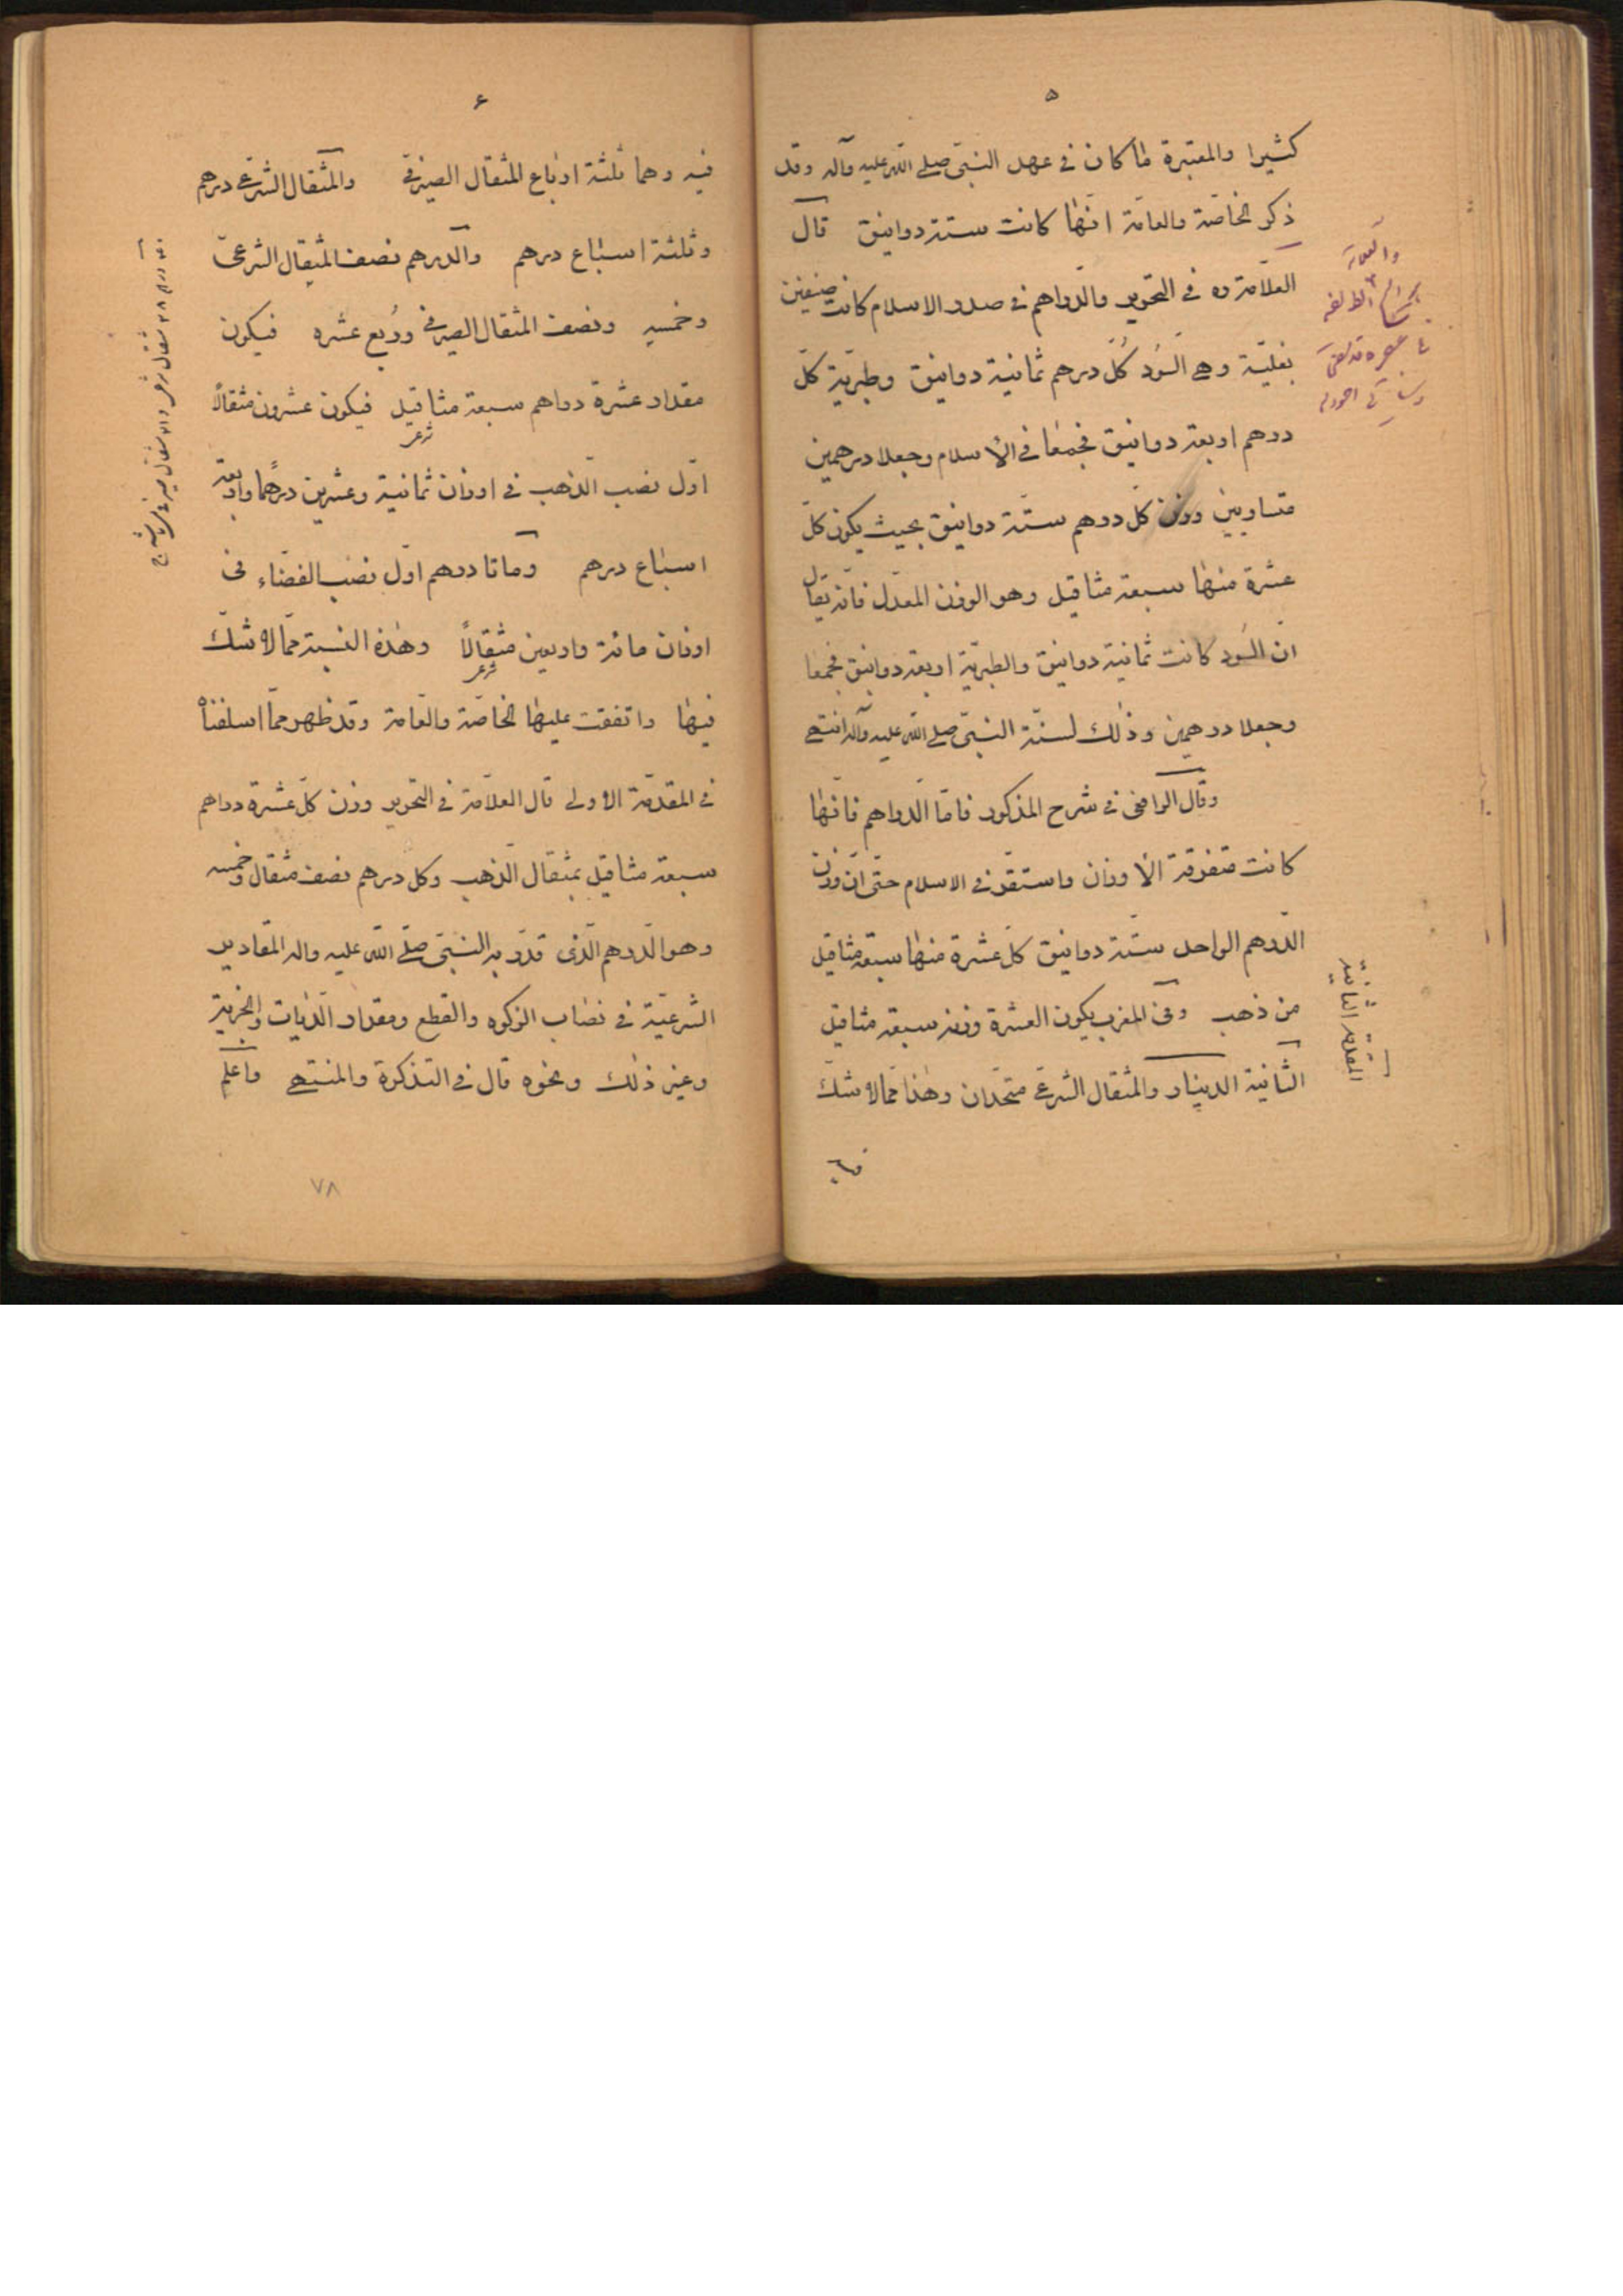 ۵
كثيرا والمعتبرة ما كان في عهد النبيّ صلى الله عليه وآله وقد
ذكر الخاصّة والعامّة انّها كانت ستة دوانيق قال
العلامة ره في التحرير والدراهم في صدر الاسلام كانت صنفين
بغليّة وهي السُود كُلّ درهم ثمانية دوانيق وطبريّة كلّ
درهم اربعة دوانيق فجمعا في الأسلام وجعلا درهمين
متساويين وزن كلّ درهم ستّة دوانيق بحيث يكون كلّ
عشرة منها سبعة مثاقيل وهو الوزن المعدّل فانّه يقال
انّ السُود كانت ثمانية دوانيق والطبريّة اربعة دوانيق فجمعا
وجعلا درهمين وذلك لسنّة النبيّ صلى الله عليه وآله انتهى
وقال الرافعى في شرح المذكور فامّا الدراهم فانّها
كانت متفرقة الأوزان واستقر في الاسلام حتى انّ وزن
الدرهم الواحد ستّة دوانيق كلّ عشرة منها سبعة مثاقيل
من ذهب وفى المغرب يكون العشرة وزن سبعة مثاقيل
الثانية الدينار والمثقال الشرعى متحدان وهذا ممّا لا شكّ
فيه
المقدمة الثانية
۶
فيه وهما ثلثة ارباع المثقال الصيرفى والمثقال الشرعى درهم
وثلثة اسباع درهم والدرهم نصف المثقال الشرعىّ
وخمسه ونصف المثقال الصيرفى ورُبع عشره فيكون
مقدار عشرة دراهم سبعة مثاقيل فيكون عشرون مثقالًا
شرعى
اوّل نصب الذهب في اوزان ثمانية وعشرين درهمًا واربعة
اسباع درهم ومائتا درهم اوّل نصب الفضاء فى
اوزان مائة واربعين مثقالًا وهذه النسبة ممّا لا شكّ
شرعى
فيها واتفقت عليها الخاصّة والعامة وقد ظهر ممّا اسلفناه
في المقدّمة الأولى قال العلاّمة في التحرير وزن كلّ عشرة دراهم
سبعة مثاقيل بمثقال الذهب وكل درهم نصف مثقال وخمسه
وهو الدرهم الّذى قدّر به النبيّ صلّى الله عليه واله المقادير
الشرعيّة في نصاب الزكوة والقطع ومقدار الديات والجزية
وغير ذلك ونحوه قال في التذكرة والمنتهى واعلم
۷۸